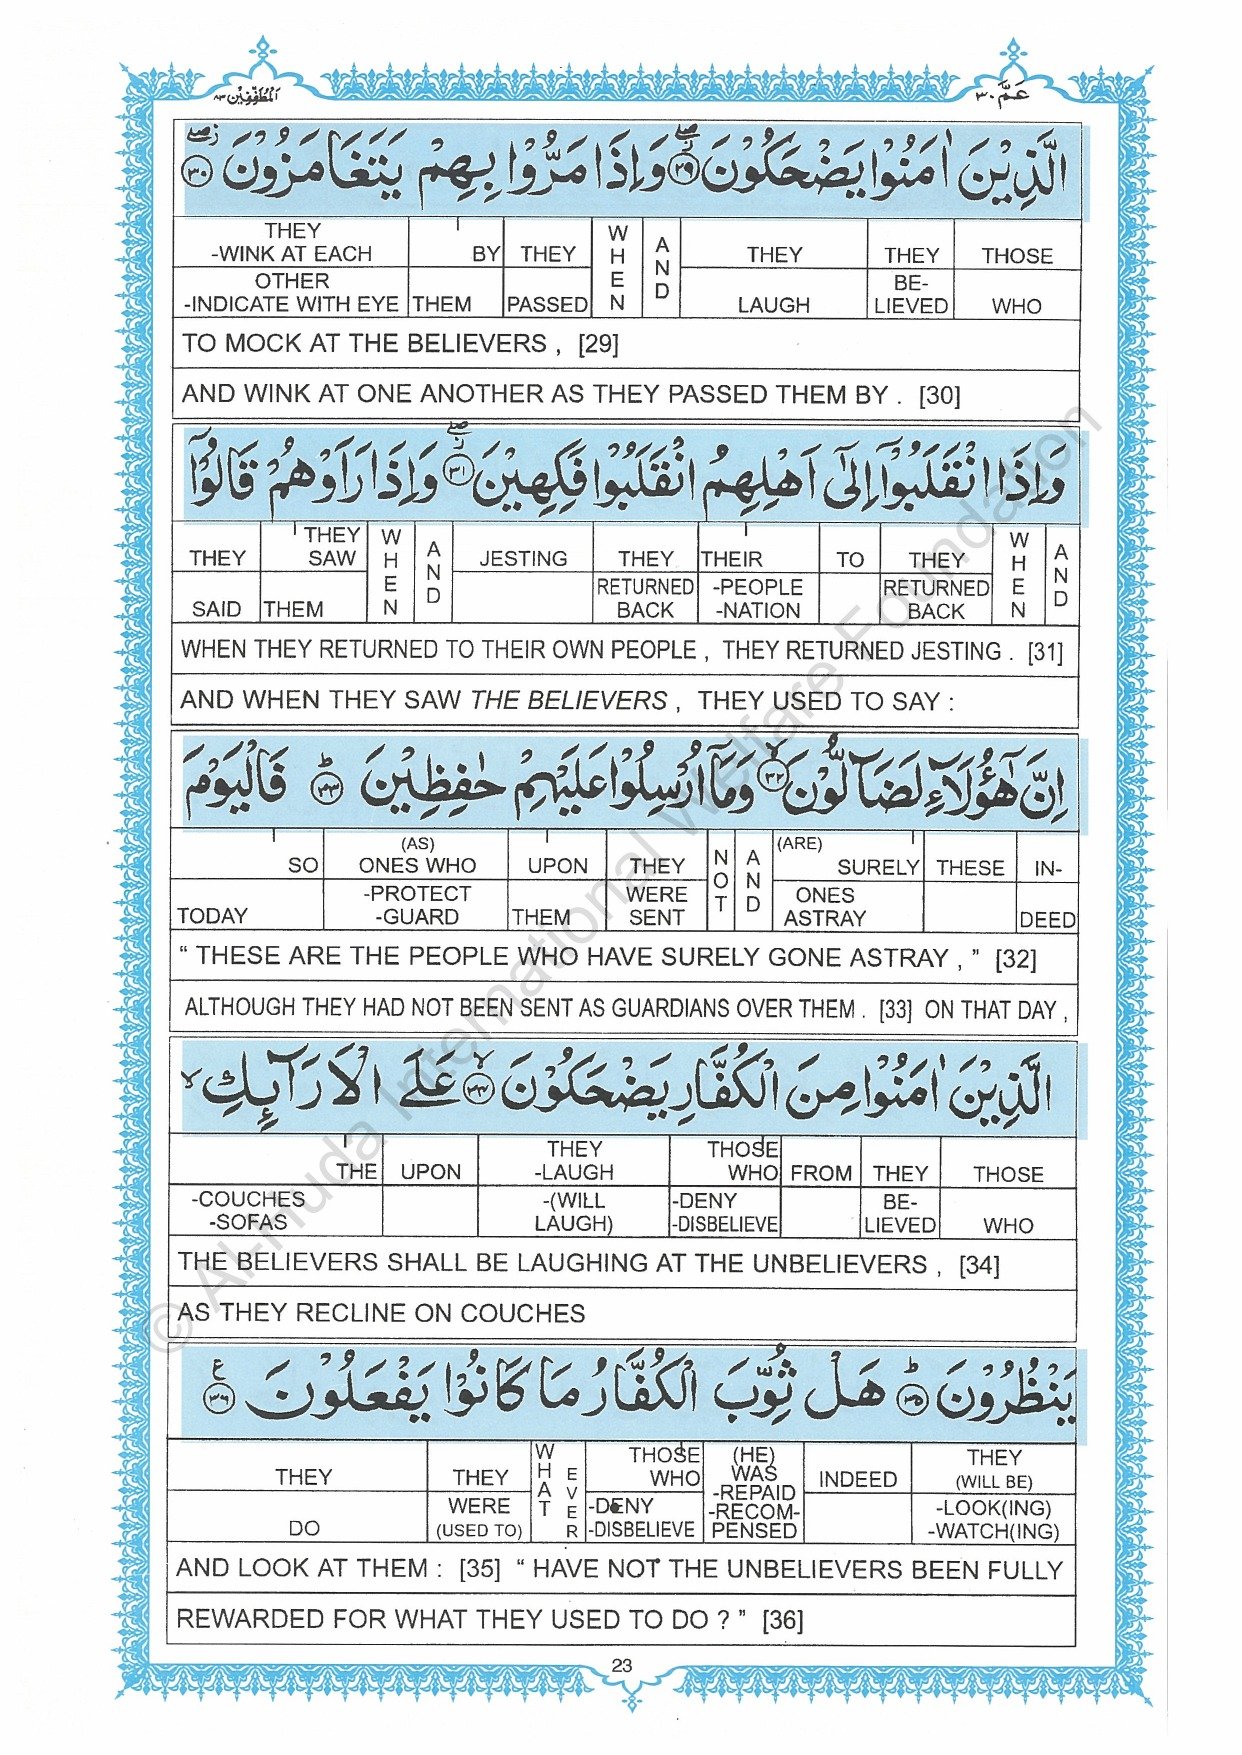 المُطَفِّفِيْن ٨٣
عَمَّ ٣٠
الَّذِيْنَ اٰمَنُوْا يَضْحَكُوْنَ ۖ٢٩ وَاِذَا مَرُّوْا بِهِمْ يَتَغَامَزُوْنَ ۖ٣٠
THEY -WINK AT EACH BY THEY WHEN AND THEY THEY THOSE
OTHER -INDICATE WITH EYE THEM PASSED LAUGH BE- LIEVED WHO
TO MOCK AT THE BELIEVERS , [29]
AND WINK AT ONE ANOTHER AS THEY PASSED THEM BY . [30]
وَاِذَا انْقَلَبُوْٓا اِلٰٓى اَهْلِهِمُ انْقَلَبُوْا فَكِهِيْنَ ۖ٣١ وَاِذَا رَاَوْهُمْ قَالُوْٓا
THEY THEY SAW WHEN AND JESTING THEY THEIR TO THEY WHEN AND
SAID THEM RETURNED BACK -PEOPLE -NATION RETURNED BACK
WHEN THEY RETURNED TO THEIR OWN PEOPLE , THEY RETURNED JESTING . [31]
AND WHEN THEY SAW THE BELIEVERS , THEY USED TO SAY :
اِنَّ هٰٓؤُلَآءِ لَضَآلُّوْنَ ۙ٣٢ وَمَآ اُرْسِلُوْا عَلَيْهِمْ حٰفِظِيْنَ ۭ٣٣ فَالْيَوْمَ
SO (AS) ONES WHO UPON THEY NOT AND (ARE) SURELY THESE IN-
TODAY -PROTECT -GUARD THEM WERE SENT ONES ASTRAY DEED
“ THESE ARE THE PEOPLE WHO HAVE SURELY GONE ASTRAY , ” [32]
ALTHOUGH THEY HAD NOT BEEN SENT AS GUARDIANS OVER THEM . [33] ON THAT DAY ,
الَّذِيْنَ اٰمَنُوْا مِنَ الْكُفَّارِ يَضْحَكُوْنَ ۙ٣٤ عَلَى الْاَرَآئِكِ ۙ
THE UPON THEY -LAUGH THOSE WHO FROM THEY THOSE
-COUCHES -SOFAS -(WILL LAUGH) -DENY -DISBELIEVE BE- LIEVED WHO
THE BELIEVERS SHALL BE LAUGHING AT THE UNBELIEVERS , [34]
AS THEY RECLINE ON COUCHES
يَنْظُرُوْنَ ۭ٣٥ هَلْ ثُوِّبَ الْكُفَّارُ مَا كَانُوْا يَفْعَلُوْنَ ٣٦ ع
THEY THEY WHAT EVER THOSE WHO (HE) WAS INDEED THEY (WILL BE)
DO WERE (USED TO) -DENY -DISBELIEVE -REPAID -RECOM- PENSED -LOOK(ING) -WATCH(ING)
AND LOOK AT THEM : [35] “ HAVE NOT THE UNBELIEVERS BEEN FULLY
REWARDED FOR WHAT THEY USED TO DO ? ” [36]
23
© Al-huda International Welfare Foundation